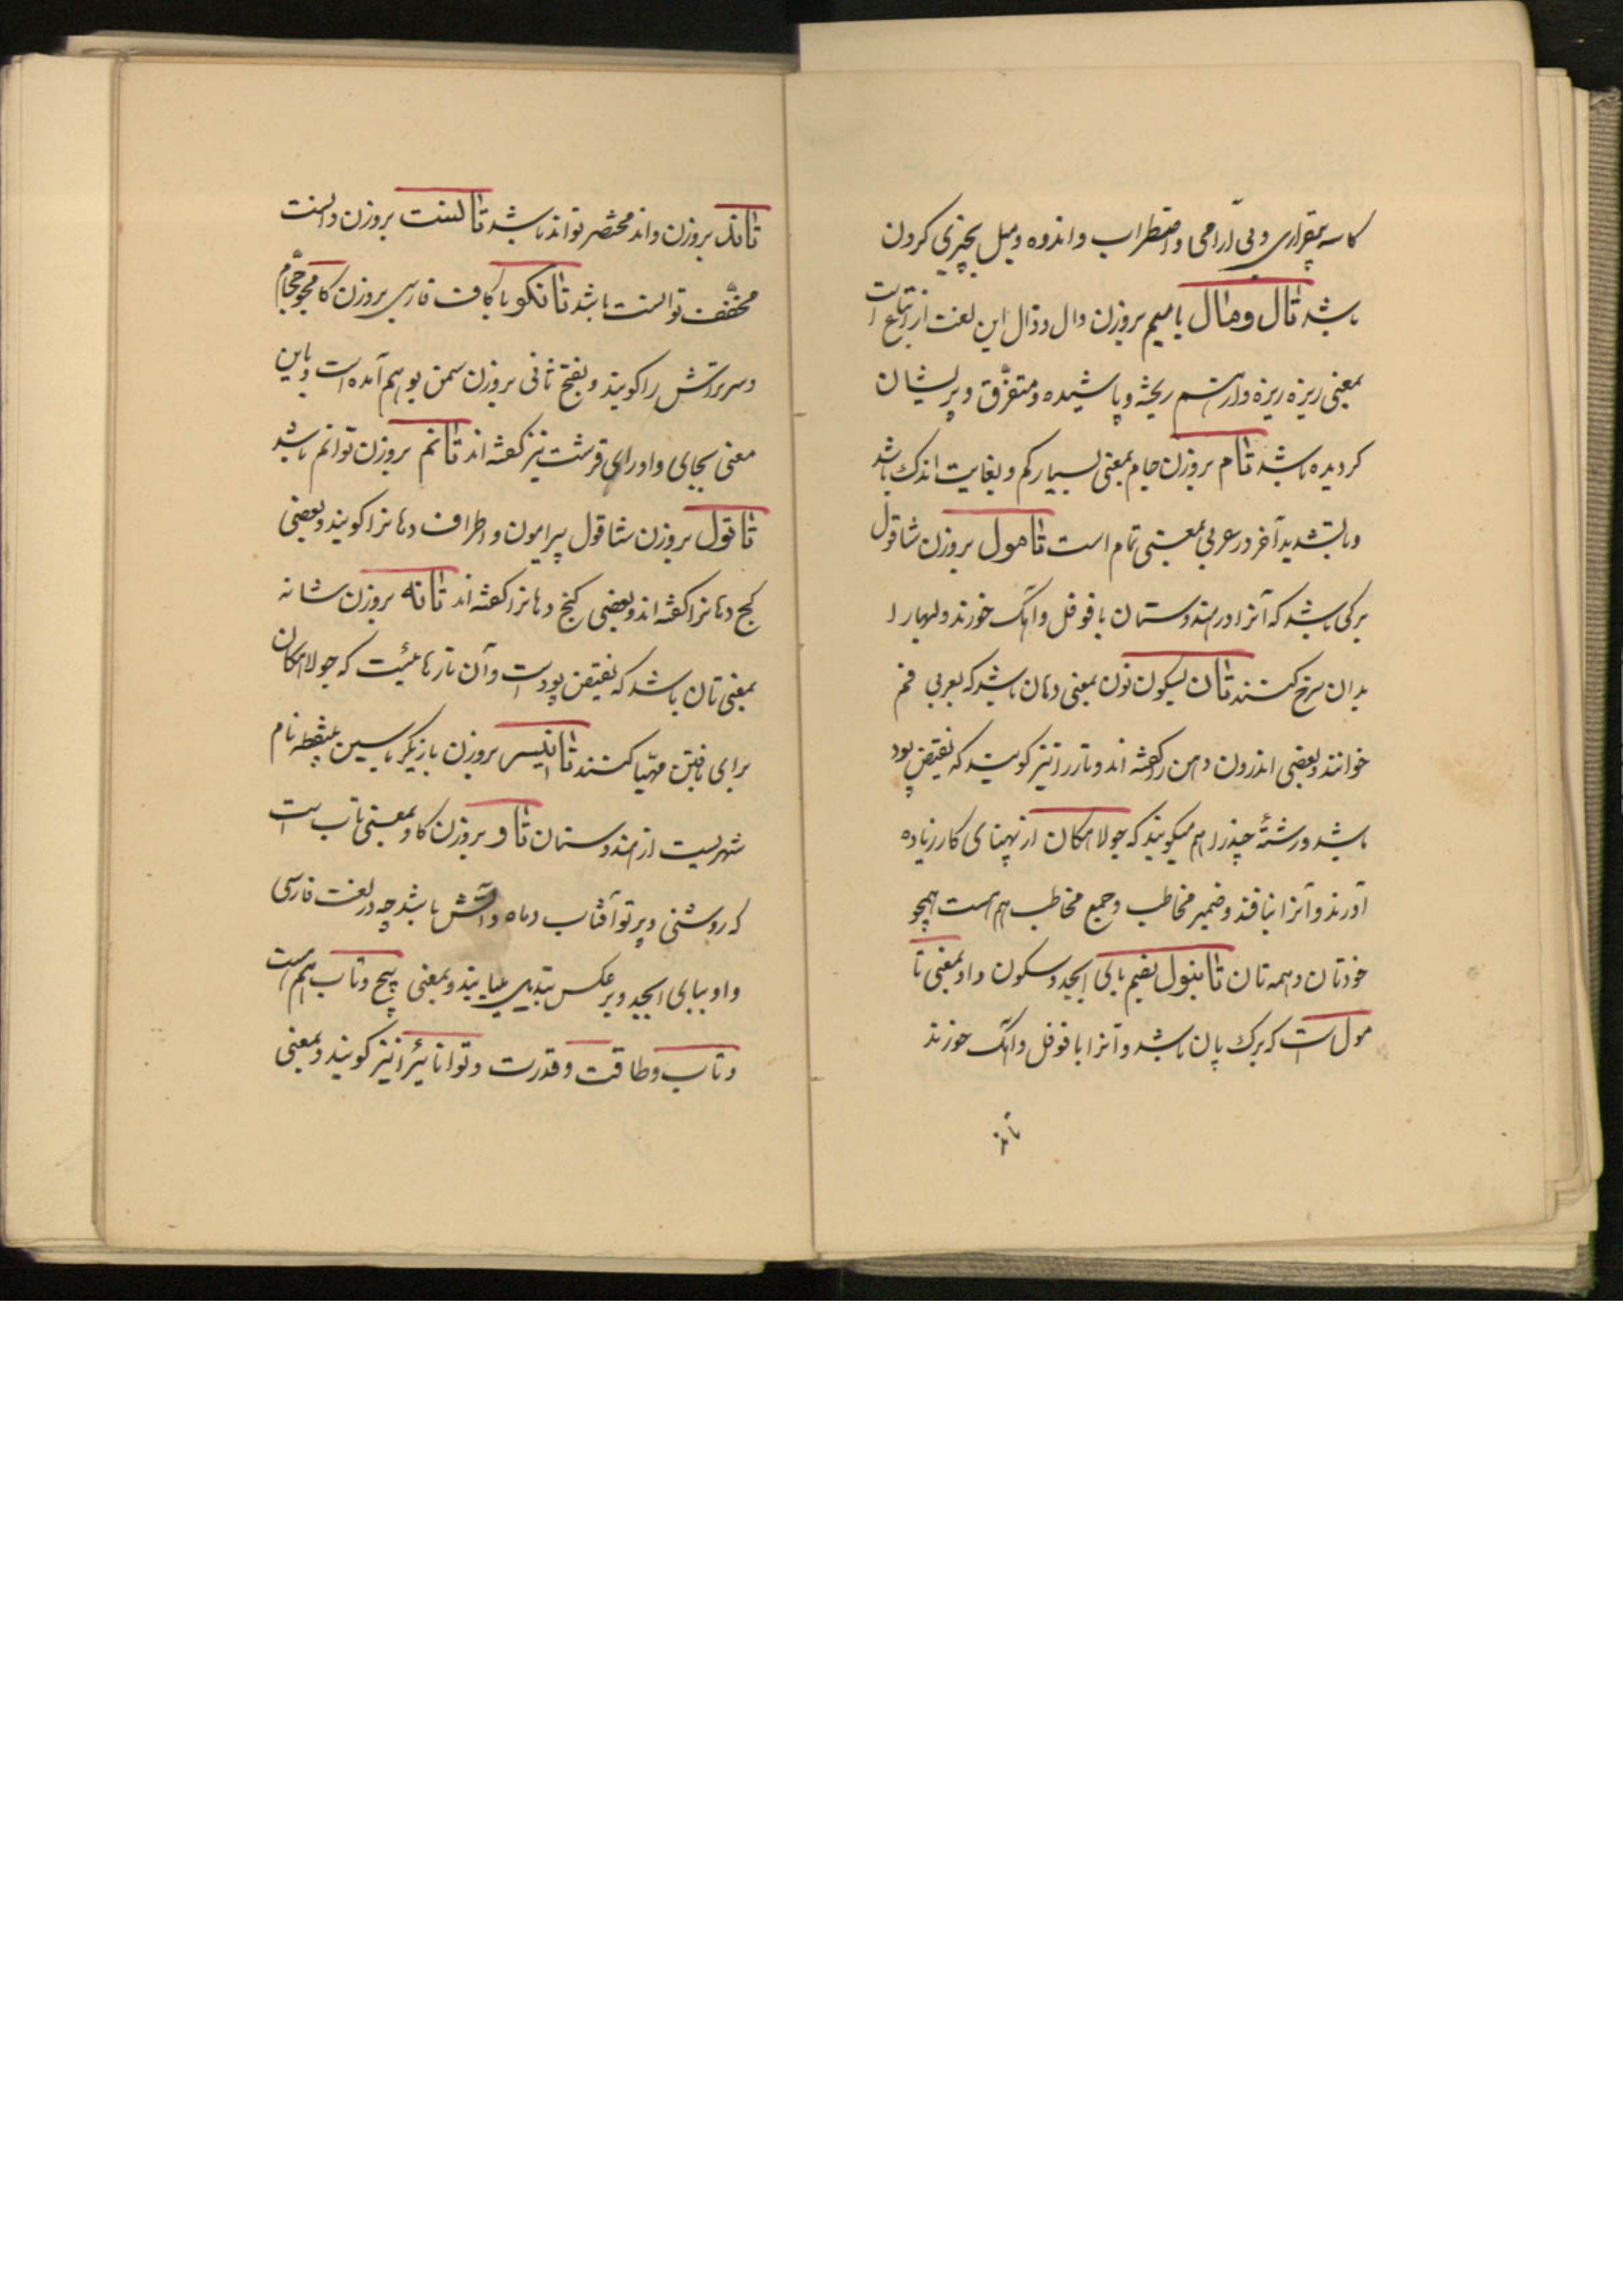 کاسه بیقراری و بی آرامی و اضطراب و اندوه و میل بچیزی کردن
باشد تال ومال با میم بروزن دال و ذال این لغت از اتباع است
بمعنی ریزه ریزه و از هم ریخته و پاشیده و متفرّق و پریشان
کردیده باشد تام بروزن جام بمعنی بسیار کم و بغایت اندک باشد
و با تشدید آخر در عربی بمعنی تمام است تامول بروزن شاقول
برکی باشد که آنرا در هندوستان با فوفل و آهک خورند و لبها را
بدان سرخ کنند تان بسکون نون بمعنی دهان باشد که بعربی فم
خوانند و بعضی اندرون دهن را کفته اند و تار را نیز کویند که نقیض پود
باشد و رشتهٔ چند را هم میکویند که جولاهکان از پهنای کار زیاده
آورند و آنرا نبافند و ضمیر مخاطب و جمع مخاطب هم هست همچو
خودتان و همه تان تانبول بضم بای ابجد و سکون واو بمعنی تا
مول است که برک پان باشد و آنرا با فوفل و آهک خورند
تاند
تاند بروزن واند مختصر تواند باشد تانست بروزن دانست
مخفّف توانست باشد تانکو با کاف فارسی بروزن کامجو حجّام
و سرتراش را کویند و بفتح ثانی بروزن سمن بو هم آمده است و باین
معنی بجای واو رای قرشت نیز کفته اند تانم بروزن توانم باشد
تاتول بروزن شاقول پیرامون و اطراف دهانرا کویند و بعضی
کج دهانرا کفته اند و بعضی کنج دهانرا کفته اند تانه بروزن شانه
بمعنی تان باشد که نقیض پود است و آن تارهائیست که جولاهکان
برای بافتن مهیّا کنند تانیسر بروزن بازیکر با سین بینقطه نام
شهریست از هندوستان تاو بروزن کاو بمعنی تاب است
که روشنی و پرتو آفتاب و ماه و آتش باشد چه در لغت فارسی
واو ببای ابجد و برعکس تبدیل مییابند و بمعنی پیچ و تاب هم است
و تاب و طاقت و قدرت و توانائیرا نیز کویند و بمعنی